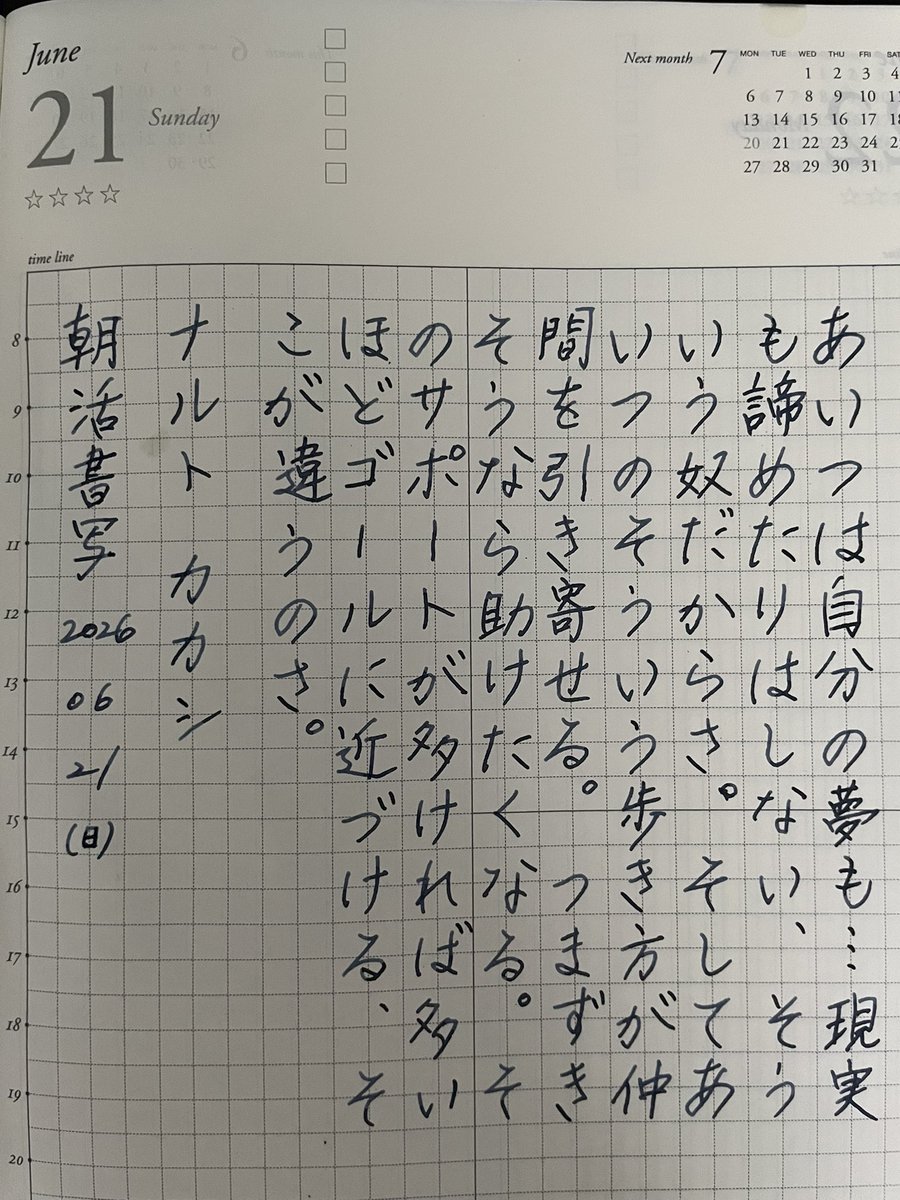 June
21
Sunday
☆☆☆☆
Next month 7
MON TUE WED THU FRI SAT
1 2 3 4
6 7 8 9 10 11
13 14 15 16 17 18
20 21 22 23 24
27 28 29 30 31
time line
8
9
10
11
12
13
14
15
16
17
18
19
20
あいつは自分の夢も…現実
も諦めたりはしない、そう
いう奴だからさ。そしてあ
いつのそういう歩き方が仲
間を引き寄せる。つまずき
そうなら助けたくなる。そ
のサポートが多ければ多い
ほどゴールに近づける、そ
こが違うのさ。
ナルト カカシ
朝活書写 2026 06 21 (日)